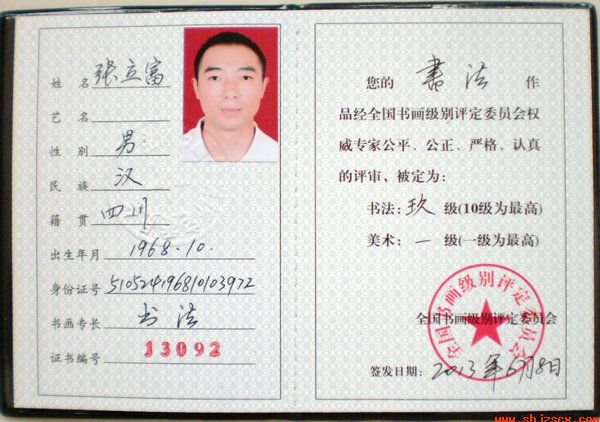 姓名 张立富
艺名
性别 男
民族 汉
籍贯 四川
出生年月 1968.10.
身份证号 510524196810103972
书画专长 书法
证书编号 13092
您的 书法 作
品经全国书画级别评定委员会权
威专家公平、公正、严格、认真
的评审，被定为：
书法：玖 级(10级为最高)
美术：一 级(一级为最高)
全国书画级别评定委员会
全国书画级别评定委员会
签发日期：2013年6月8日
www.shjzscx.com